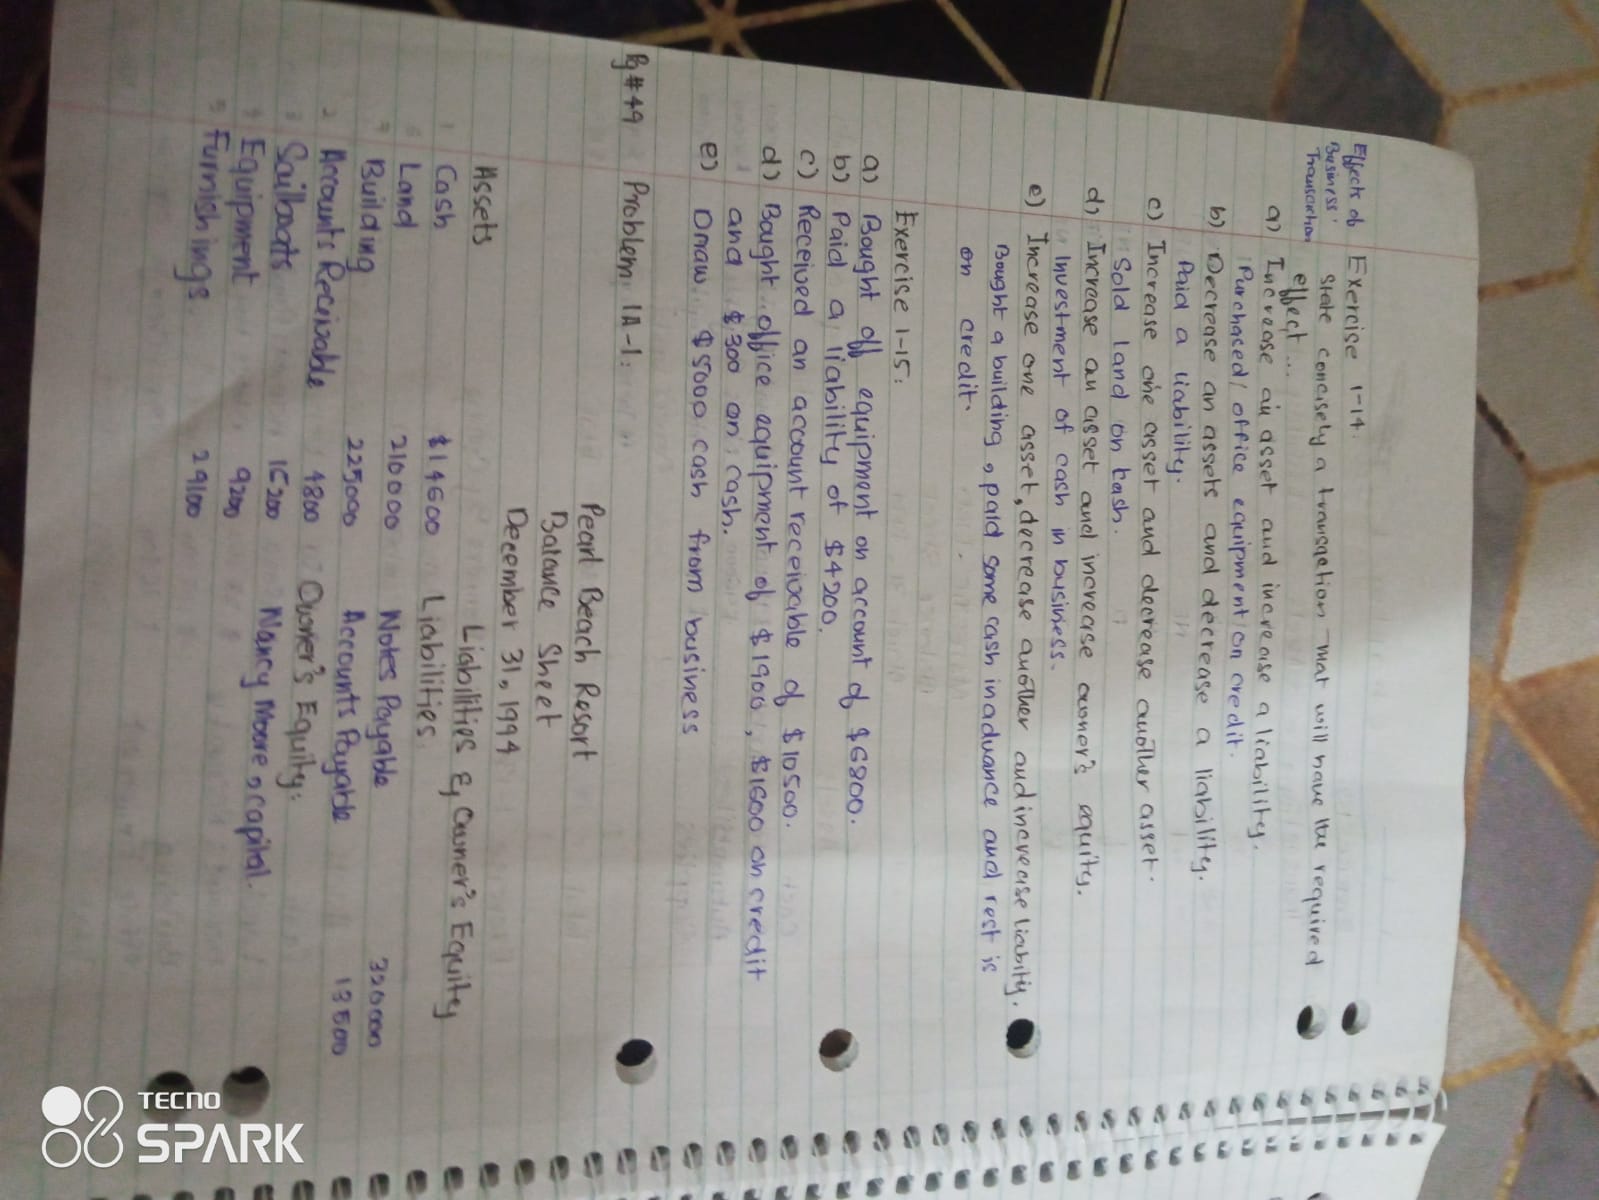 Effects of
Business
Transaction
Exercise 1-14.
State concisely a transaction that will have the required
effect ...
a) Increase an asset and increase a liability.
Purchased office equipment on credit.
b) Decrease an assets and decrease a liability.
Paid a liability.
c) Increase one asset and decrease another asset.
Sold land on cash.
d) Increase an asset and increase owner's equity.
Investment of cash in business.
e) Increase one asset, decrease another and increase liabity.
Bought a building, paid some cash in advance and rest is
on credit.
Exercise 1-15:
a) Bought off equipment on account of $6800.
b) Paid a liability of $4200.
c) Received an account receivable of $10500.
d) Bought office equipment of $1900, $1600 on credit
and $300 on cash.
e) Draw $5000 cash from business
Pg #49 Problem 1A-1:
Pearl Beach Resort
Balance Sheet
December 31, 1994
Assets Liabilities & Owner's Equity
Cash $14600 Liabilities
Land 210000 Notes Payable 320000
Building 225000 Accounts Payable 13500
Accounts Receivable 4800 Owner's Equity:
Sailboats Nancy Moore, capital.
Equipment 9200
Furnishings 29100
TECNO
SPARK